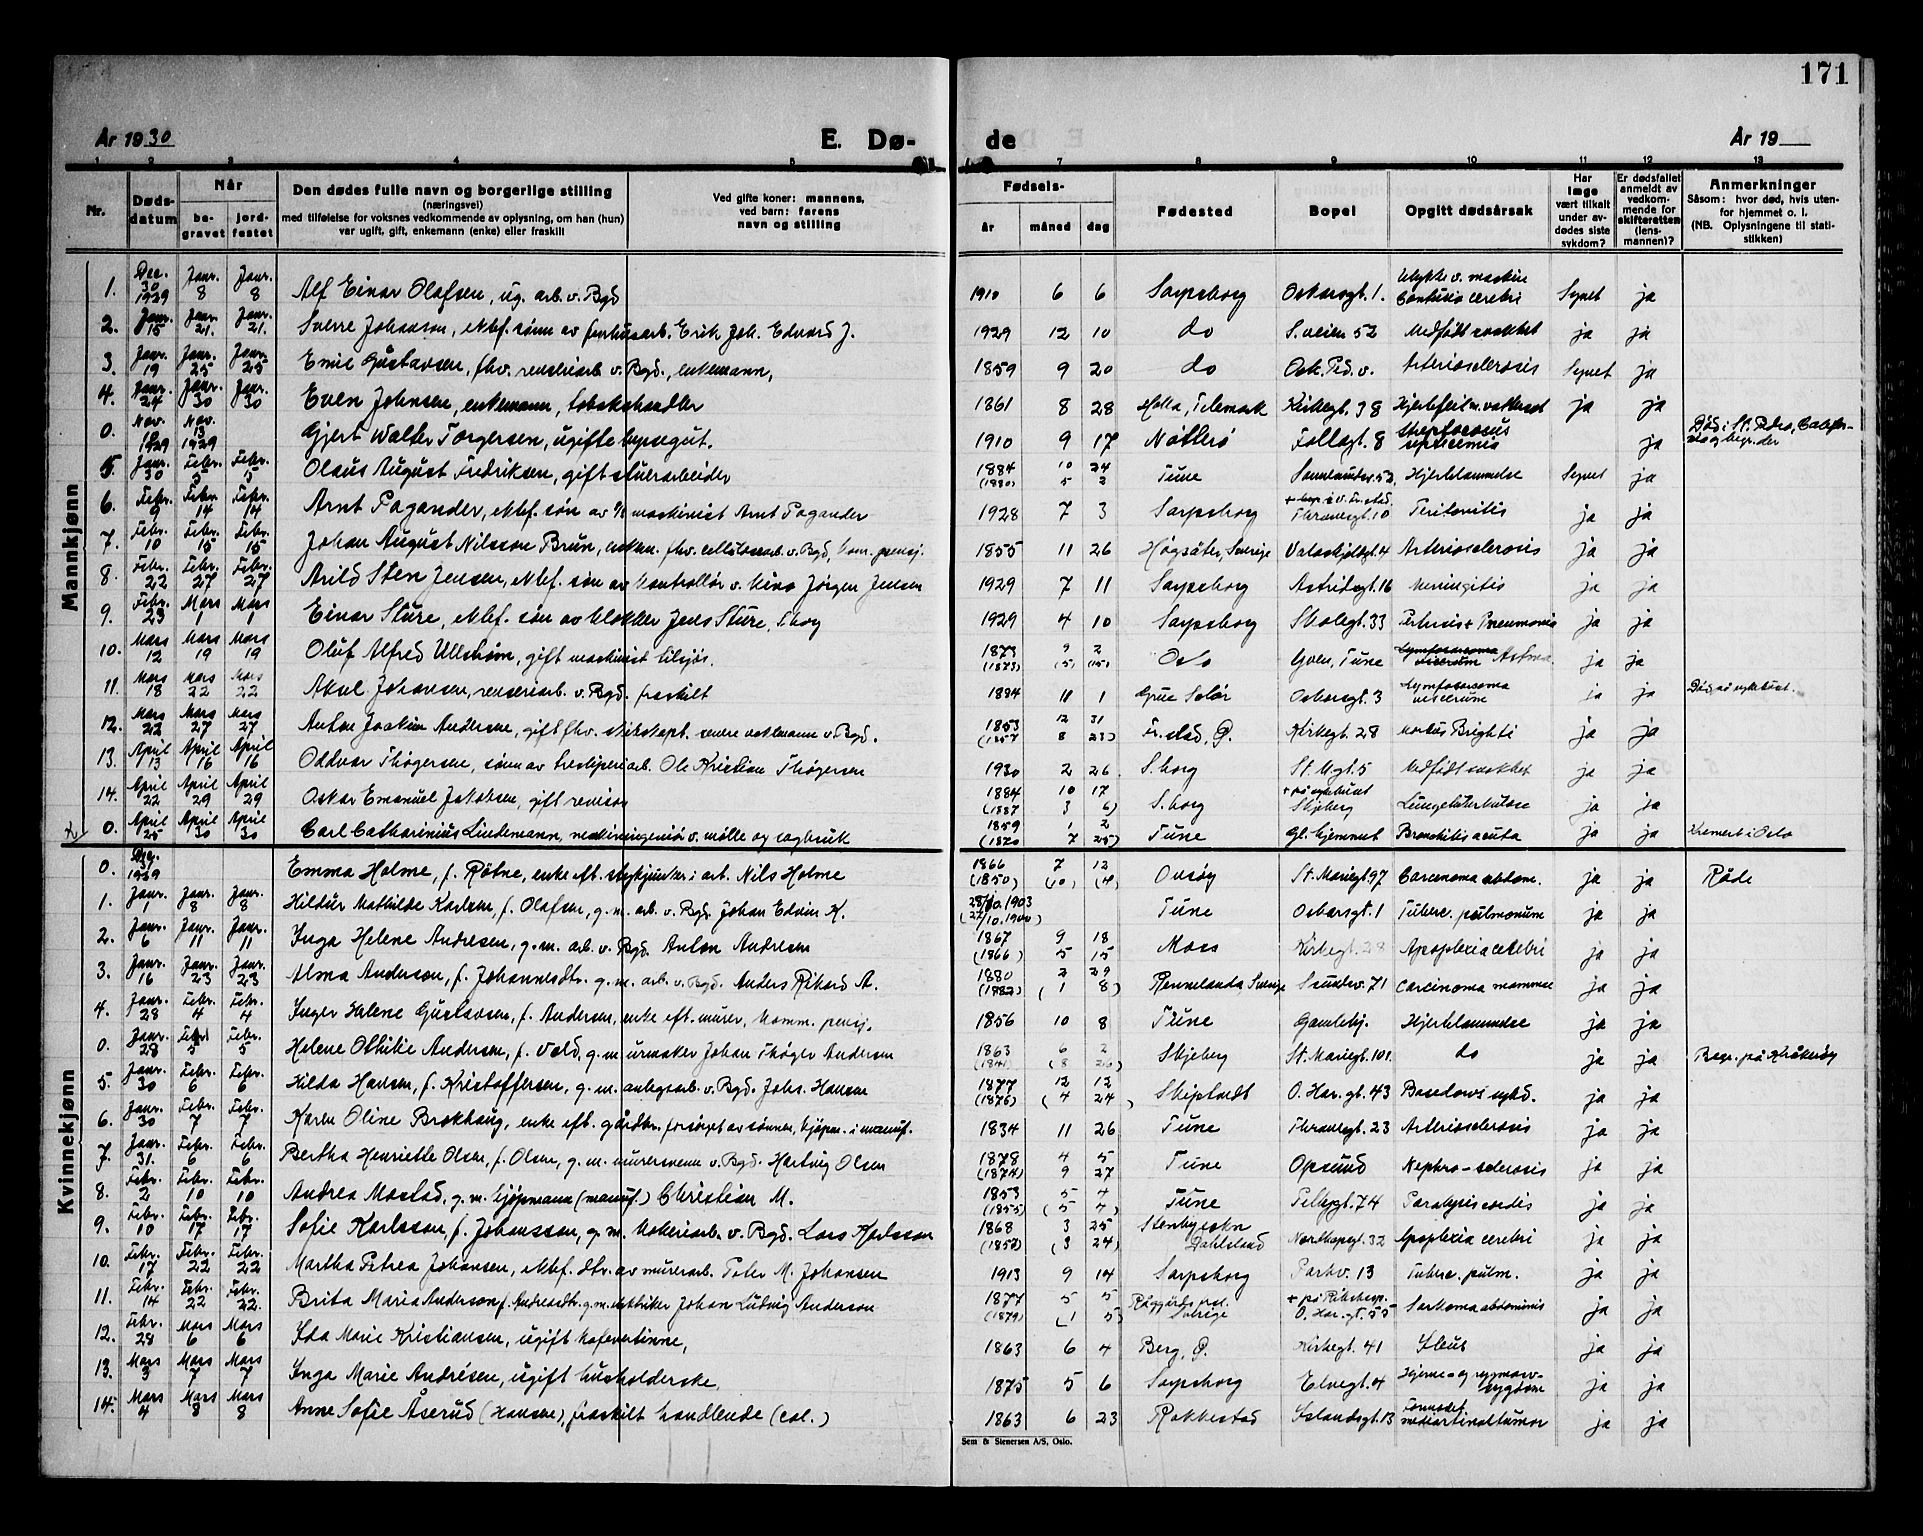 171
År 1930 E. Dø- de År 19
1 2 3 4 5 7 8 9 10 11 12 13
Nr. Døds-datum Når be-gravet jord-festet Den dødes fulle navn og borgerlige stilling (næringsvei) med tilføielse for voksnes vedkommende av oplysning, om han (hun) var ugift, gift, enkemann (enke) eller fraskilt Ved gifte koner: mannens, ved barn: farens navn og stilling Fødsels- år måned dag Fødested Bopel Opgitt dødsårsak Har læge vært tilkalt under av-dødes siste sykdom? Er dødsfallet anmeldt av vedkom-mende for skifteretten (lens-mannen)? Anmerkninger Såsom: hvor død, hvis uten-for hjemmet o. l. (NB. Oplysningene til stati-stikken)
Mannkjønn
1. Dec. 30 1929 Janr. 8 Janr. 8 Alf Einar Olafsen, ug. arb. v. Bgd 1910 6 6 Sarpsborg Oskarsgt. 1. Ulykke v. maskin Contusio cerebri Synet ja
2. Janr. 15 Janr. 21. Janr. 21. Sverre Johansen, ektef. sønn av fyrhusarb. Erik Joh. Edvard J. 1929 12 10 do S. veien 52 Medfødt svakhet ja ja
3. Janr. 19 Janr. 25 Janr. 25 Emil Gustavsen, fhv. renseriarb v. Bgd., enkemann, 1859 9 20 do Osk. Ped. v. Arteriosclerosis Synet ja
4. Janr. 24 Janr. 30 Janr. 30 Even Johnsen, enkemann, tobakshandler 1861 8 28 Holla, Telemark Kirkegt. 38 Hjertefeil m. vattersot ja ja
0. Nov. 1929 Nov. 13 1929 Gjert Walter Torgersen, ugift byssegut. 1910 9 17 Nøtterø Follogt. 8 Streptococcus septicemia ja Død i St. Pedro, California og begr. der
5 Janr. 30 Febr. 5 Febr. 5 Olaus August Fredriksen, gift stuerarbeider 1884 (1880) 10 5 24 2 Tune 52 Hjertelammelse Synet ja
6. Febr. 9 Febr. 14 Febr. 14 Arnt Pagander, ektef. søn av maskinist Arnt Pagander 1928 7 3 Sarpsborg Thranesgt. 10 Peritonitis ja ja
7. Febr. 10 Febr. 15 Febr. 15 Johan August Nilsson Brun, enkem. fhv. cellulosearb. v. Bgd, kom. pensj. 1855 11 26 Høgsäter, Sverige Valaskjoldgt. 4 Arteriosclerosis ja ja
8. Febr. 22 Febr. 27 Febr. 27 Arild Sten Jensen, ektef. søn av kontrollør v. kino Jørgen Jensen 1929 7 11 Sarpsborg Astridsgt. 16 Meningitis ja ja
9. Febr. 23 Mars 1 Mars 1 Einar Sture, ektef. søn av klokker Jens Sture, S.borg 1929 4 10 Sarpsborg Skolegt. 33 Pertussis + Pneumonia ja ja
10. Mars 12 Mars 19 Mars 19 Oluf Alfred Ullström, gift maskinist tilsjøs. 1873 (1873) 9 (5) 2 (15) Oslo Tune Lymfosarcoma viscerum Astma. ja ja
11. Mars 18 Mars 22 Mars 22 Aksel Johansen, renseriarb. v. Bgd. fraskilt 1884 11 1 Grue Solør Oskarsgt. 3 Lymfosarcoma viscerum ja ja Død på sykehuset.
12. Mars 22 Mars 27 Mars 27 Anton Joakim Andersen, gift fhv. skibskapt. senere vaktmann v. Bgd. 1853 (1857 12 8 31 23) Fr.stad, Ø. Kirkegt. 28 Morbus Brighti ja ja
13. April 13 April 16 April 16 Oddvar Thøgersen, sønn av tresliperiarb. Ole Kristian Thøgersen 1930 2 26. S.borg St. Mgt. 5 Medfødt svakhet ja ja
14. April 22 April 29 April 29 Oskar Emanuel Jakobsen, gift revisor 1884 (1887 10 3 17 6) S.borg + på sykehuset Skjeberg Lungetuberkulose ja ja
0. April 25 April 30 April 30 Carl Catharinius Lindemann, maskiningeniør v. mølle og sagbruk 1859 (1820 1 7 2 25) Tune Gl. hjemmet Bronchitis acuta ja ja Kremert i Oslo
Kvinnekjønn
0. Dec. 1929 Emma Holme, f. Røtne, enke eft. arb. Nils Holme 1866 (1850) 7 (10) 12 (4) Onsøy St. Mariegt. 97 Carcinoma abdom. ja ja Råde
1. Janr. 1 Janr. 8 Janr. 8 Hildur Mathilde Karlsen, f. Olafsen, g. m. arb. v. Bgd. Johan Edvin K. 28/10.1903 (22/10.1900) Tune Oskarsgt. 1 Tuberc. pulmonum ja ja
2. Janr. 6 Janr. 11 Janr. 11 Inga Helene Andresen, g. m. arb. v. Bgd. Anton Andresen 1867 (1866) 9 5 18 15 Moss Kirkegt. 28 Apoplexia cerebri ja ja
3. Janr. 16 Janr. 23 Janr. 23 Alma Anderson, f. Johannesdtr. g. m. arb. v. Bgd. Anders Rikard A. 1880 (1882) 2 (1 29 8) Rennelanda Sverige Sundsv. 71 Carcinoma mammae ja ja
4. Janr. 28 Febr. 4 Febr. 4 Inger Helene Gustavsen, f. Andersen, enke eft. murer, komm. pensj. 1856 10 8 Tune Gamlehj. Hjertelammelse ja ja
0. Janr. 28 Febr. 5 Febr. 5 Helene Othilie Andersen, f. Vold, g. m. urmaker Johan Thøger Andersen 1863 (1841) 6 (8 2 26) Skjeberg St. Mariegt. 101. do ja ja Begr. på Kråkerøy
5. Janr. 30 Febr. 6 Febr. 6 Hilda Hansen, f. Kristoffersen, g. m. anlegsarb. v. Bgd. Johs. Hansen 1877 (1876) 12 (4 12 24) Skiptvedt O. Har. gt. 43 Basedows sykd. ja ja
6. Janr. 30 Febr. 7 Febr. 7 Karen Oline Brekhaug, enke eft. gårdbr. forsørget av sønnen, kjøpm. i manuf. 1834 11 26 Tune Thranesgt. 23 Arteriosclerosis ja ja
7. Janr. 31. Febr. 6 Febr. 6 Bertha Henriette Olsen, f. Olsen, g. m. murersvenn v. Bgd. Hartvig Olsen 1878 (1874) 4 9 5 27 Tune Opsund Nephro-sclerosis ja ja
8. Febr. 2 Febr. 10 Febr. 10 Andrea Mostad, g. m. kjøpmann (manuf.) Christian M. 1853 (1855) 5 (5 4 7) Tune Pellygt. 74 Paralysis cordis ja ja
9. Febr. 10 Febr. 17 Febr. 17 Sofie Karlsson, f. Johansson, g. m. kokeriarb. v. Bgd. Lars Karlsson 1868 (1857) 3 (3 25 24) Stenbyskn Dahlsland Nordkapgt. 32 Apoplexia cerebri ja ja
10. Febr. 17 Febr. 22 Febr. 22 Martha Petrea Johansen, ektef. dtr. av murerarb. Peter M. Johansen 1913 9 14 Sarpsborg Parkv. 13 Tuberc. pulm. ja ja
11. Febr. 14 Febr. 22 Febr. 22. Brita Maria Anderson, f. Andreasdtr. g. m. elektriker Johan Ludvig Anderson 1877 (1879) 5 (1 5 5) Sverige + på Rikshosp. O. Har. gt. 55 Sarkoma abdominis ja ja
12. Febr. 28 Mars 6 Mars 6 Ida Marie Kristiansen, ugift kafevertinne, 1863 6 4 Berg, Ø. Kirkegt. 41 Ileus ja ja
13. Mars 3 Mars 7 Mars 7 Inga Marie Andrésen, ugift husholderske, 1875 5 6 Sarpsborg Elvegt. 4 Hjerne- og ryggmarv-sygdom ja ja
14. Mars 4 Mars 8 Mars 8 Anne Sofie Åserud (Hansen), fraskilt handlende (col.) 1863 6 23 Rakkestad Islandsgt. 13 mediastinaltumor ja ja
Sem & Stenersen A/S, Oslo.